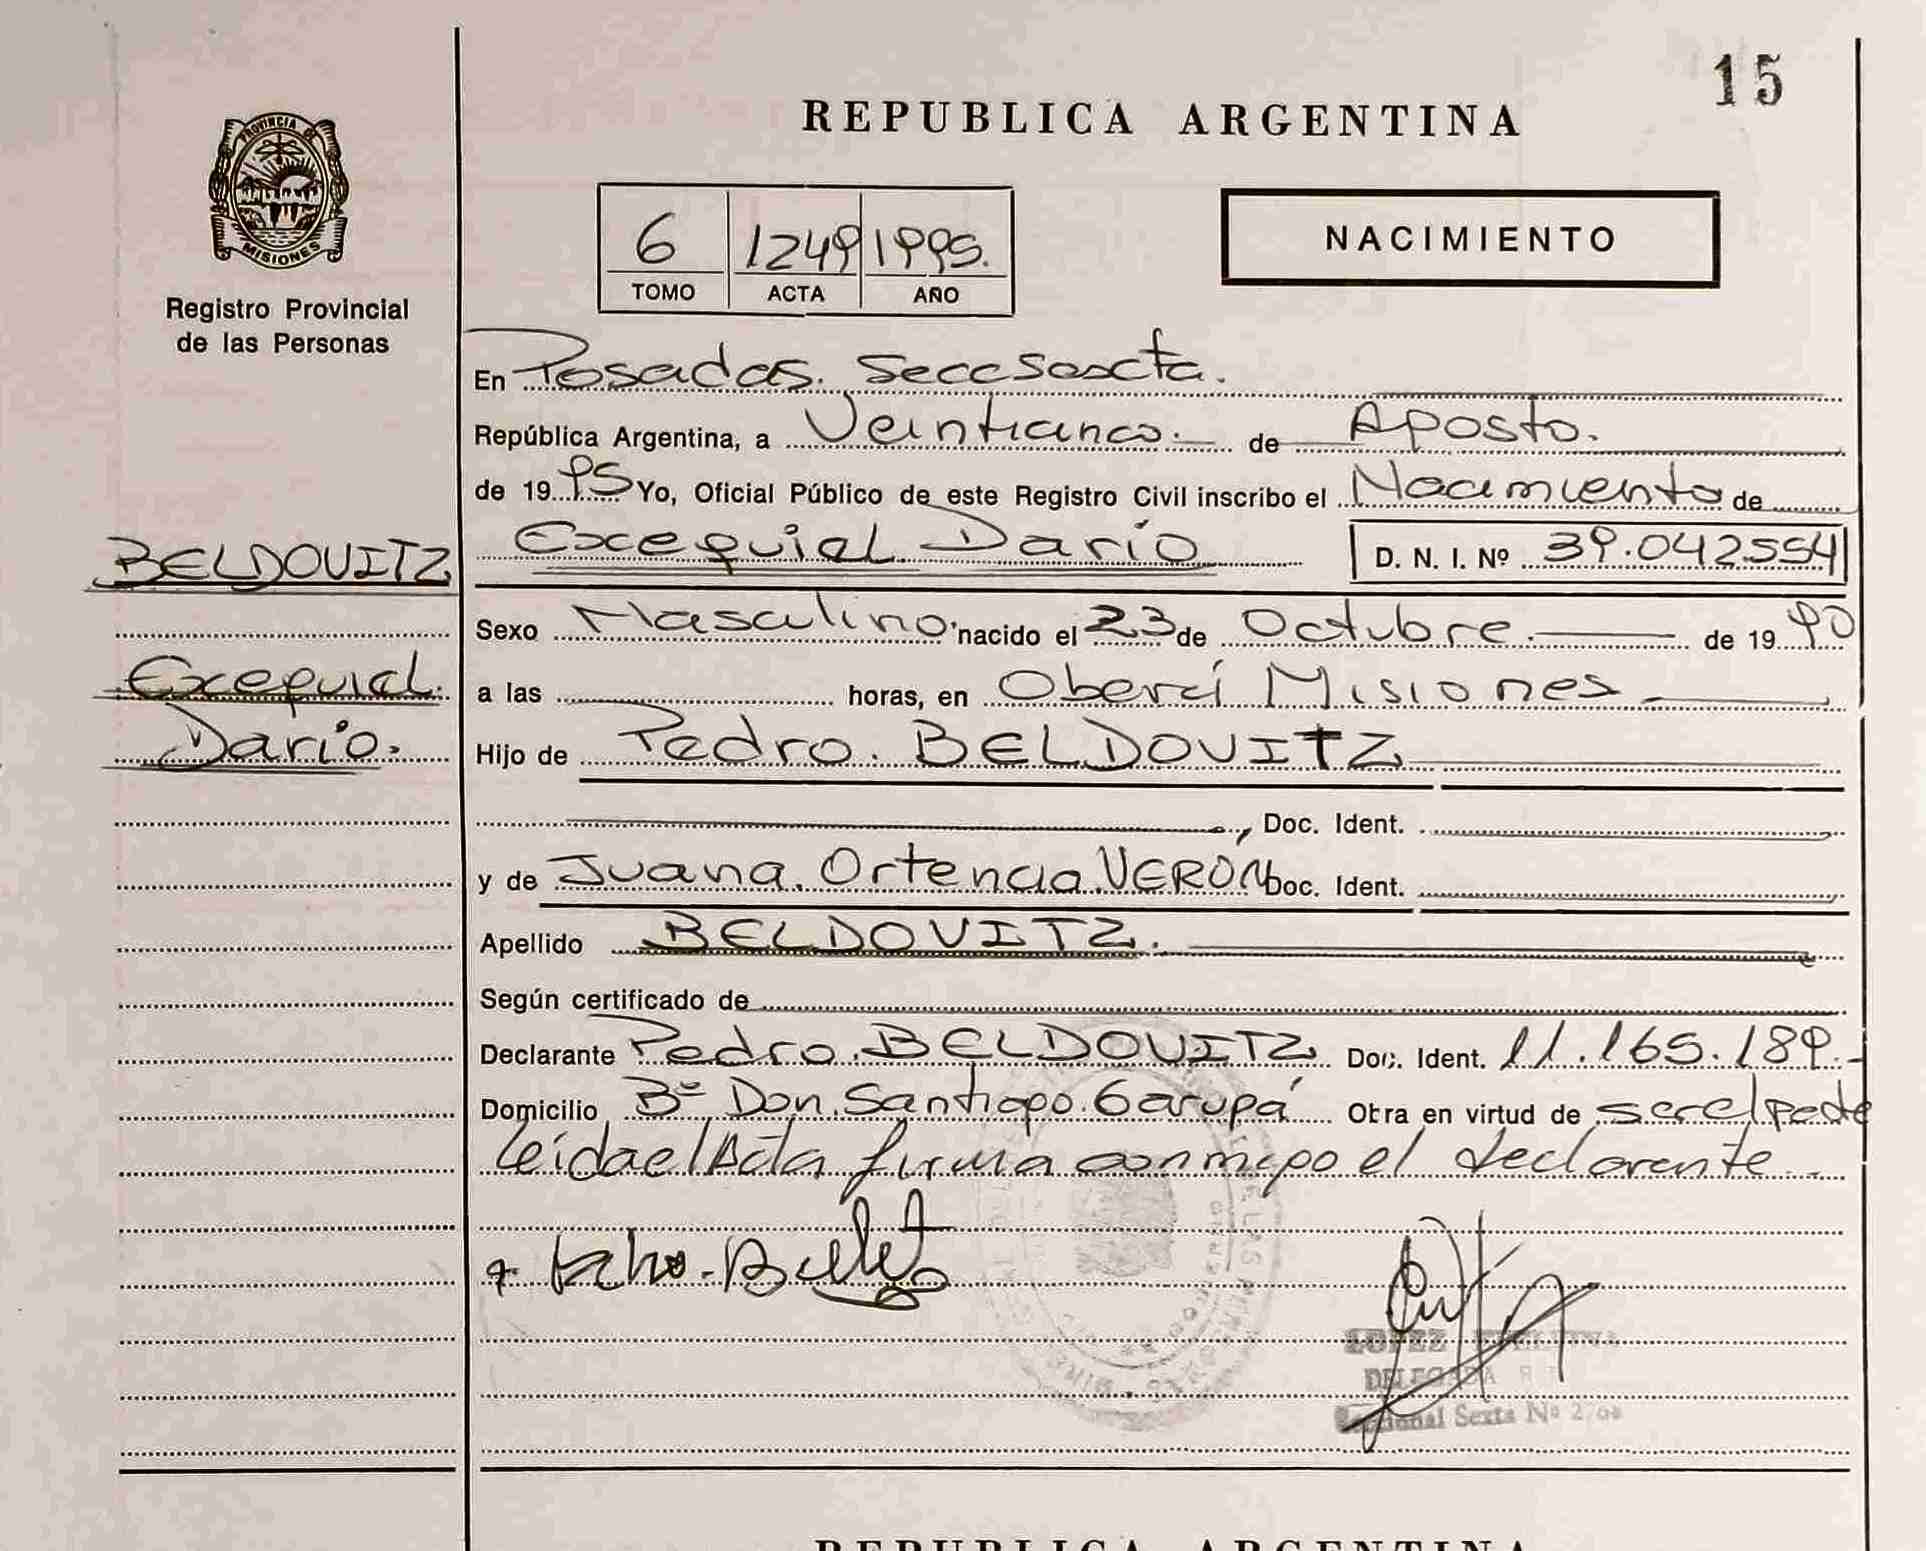 15
REPUBLICA ARGENTINA
PROVINCIA DE
MISIONES
Registro Provincial
de las Personas
6 1249 1995.
TOMO ACTA AÑO
NACIMIENTO
En Posadas. Secc Sexta.
República Argentina, a Veinticinco. de Agosto.
de 1995 Yo, Oficial Público de este Registro Civil inscribo el Nacimiento de
BELDOVITZ
Exequiel Darío D. N. I. Nº 39.042554
Sexo Masculino. nacido el 23 de Octubre. de 1990
Exequiel
a las horas, en Oberá Misiones
Darío.
Hijo de Pedro. BELDOVITZ
Doc. Ident.
y de Juana. Ortencia. VERÓN Doc. Ident.
Apellido BELDOVITZ.
Según certificado de
Declarante Pedro. BELDOVITZ Doc. Ident. 11.165.189.-
Domicilio Bº Don. Santiago. Garupá Obra en virtud de ser el padre
leída el Acta firma conmigo el declarante
LOPEZ
DELEGADA
Seccional Sexta Nº
REPUBLICA ARGENTINA